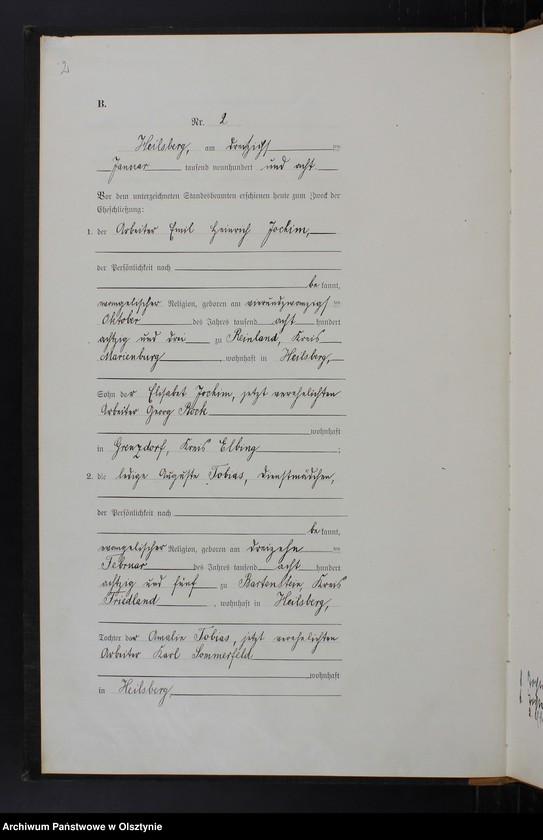 2
B.
Nr. 2
Heilsberg, am dreizigsten
Januar tausend neunhundert und acht
Vor dem unterzeichneten Standesbeamten erschienen heute zum Zweck der
Eheschließung:
1. der Arbeiter Emil Heinrich Jochim,
der Persönlichkeit nach
bekannt,
evangelischer Religion, geboren am vierundzwanzigsten
Oktober des Jahres tausend acht hundert
achtzig und drei zu Reinland, Kreis
Marienburg, wohnhaft in Heilsberg,
Sohn der Elisabet Jochim, jetzt verehelichten
Arbeiter Georg
wohnhaft
in Grenzdorf, Kreis Elbing;
2. die ledige Auguste Tobias, Dienstmädchen,
der Persönlichkeit nach
bekannt,
evangelischer Religion, geboren am dreizehn ten
Februar des Jahres tausend acht hundert
achtzig und fünf zu Bartenstein, Kreis
Friedland, wohnhaft in Heilsberg,
Tochter der Amalie Tobias, jetzt verehelichten
Arbeiter Karl Sommerfeld
wohnhaft
in Heilsberg,
Archiwum Państwowe w Olsztynie